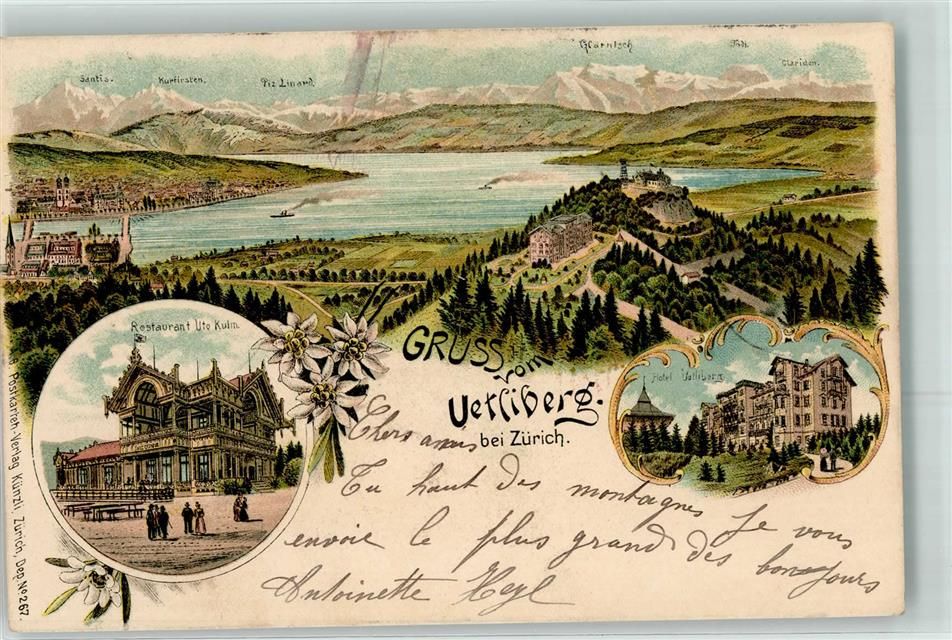 Säntis.
Kurfirsten.
Piz Linard.
Glärnisch
Tödi.
Clariden.
Restaurant Uto Kulm.
GRUSS vom
Uetliberg.
bei Zürich.
Hotel Uetliberg.
Chers amis
Du haut des montagnes Je vous
envoie le plus grand des bonjours
Antoinette Heyl
Postkarten-Verlag Künzli Zürich, Dep. No 267.